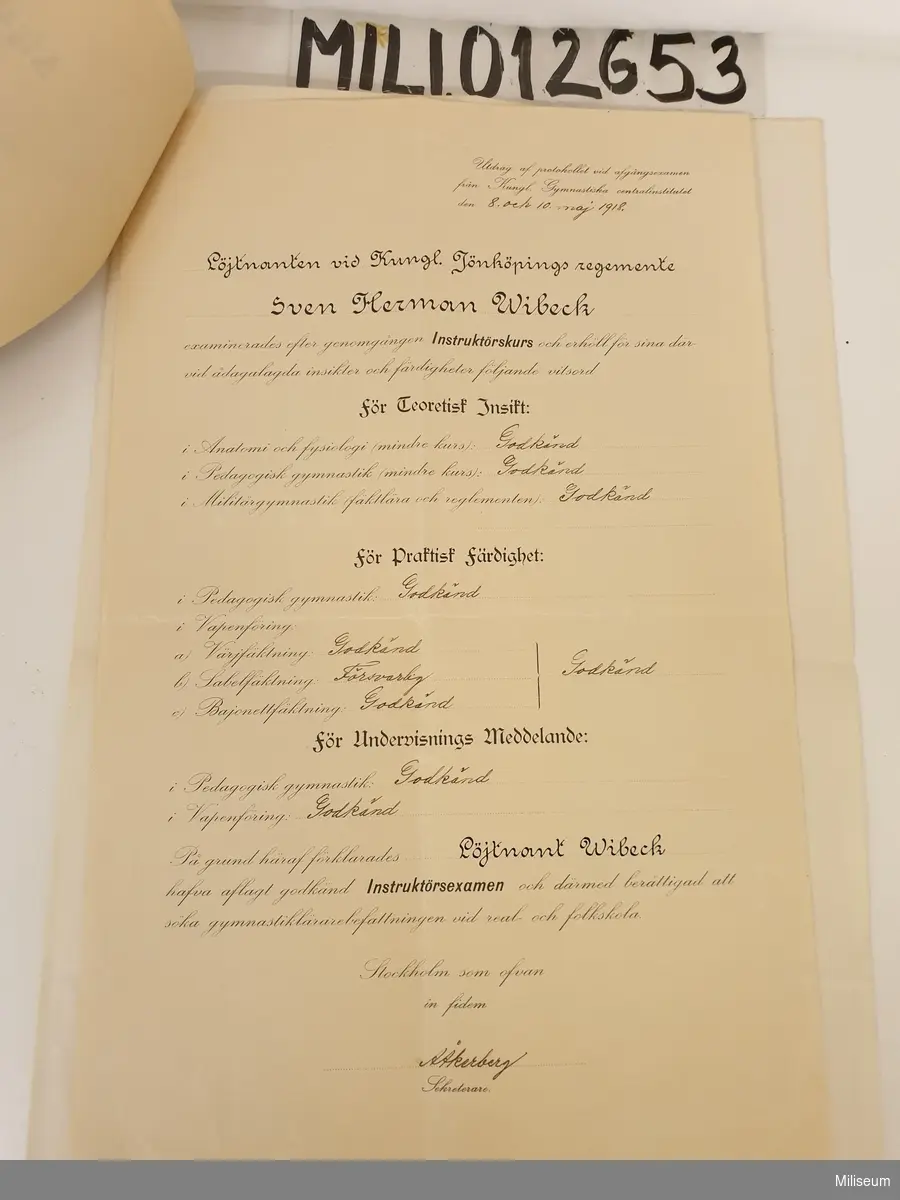 MILI.012653
Utdrag af protokollet vid afgångsexamen
från Kungl. Gymnastiska centralinstitutet
den 8. och 10. maj 1918.
Löjtnanten vid Kungl. Jönköpings regemente
Sven Herman Wibeck
examinerades efter genomgången Instruktörskurs och erhöll för sina där-
vid ådagalagda insikter och färdigheter följande vitsord
För Teoretisk Insikt:
i Anatomi och fysiologi (mindre kurs): Godkänd
i Pedagogisk gymnastik (mindre kurs): Godkänd
i Militärgymnastik (fäktlära och reglementen): Godkänd
För Praktisk Färdighet:
i Pedagogisk gymnastik: Godkänd
i Vapenföring:
a) Värjfäktning: Godkänd
b) Sabelfäktning: Försvarlig Godkänd
c) Bajonettfäktning: Godkänd
För Undervisnings Meddelande:
i Pedagogisk gymnastik: Godkänd
i Vapenföring: Godkänd
På grund häraf förklarades Löjtnant Wibeck
hafva aflagt godkänd Instruktörsexamen och därmed berättigad att
söka gymnastiklärarebefattningen vid real- och folkskola.
Stockholm som ofvan
in fidem
A Åkerberg
Sekreterare.
Miliseum